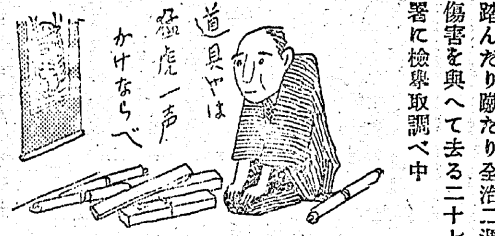 踏んだり蹴たり全治二週
傷害を與へて去る二十七
署に檢擧取調べ中
道具やは
猛虎一声
かけならべ